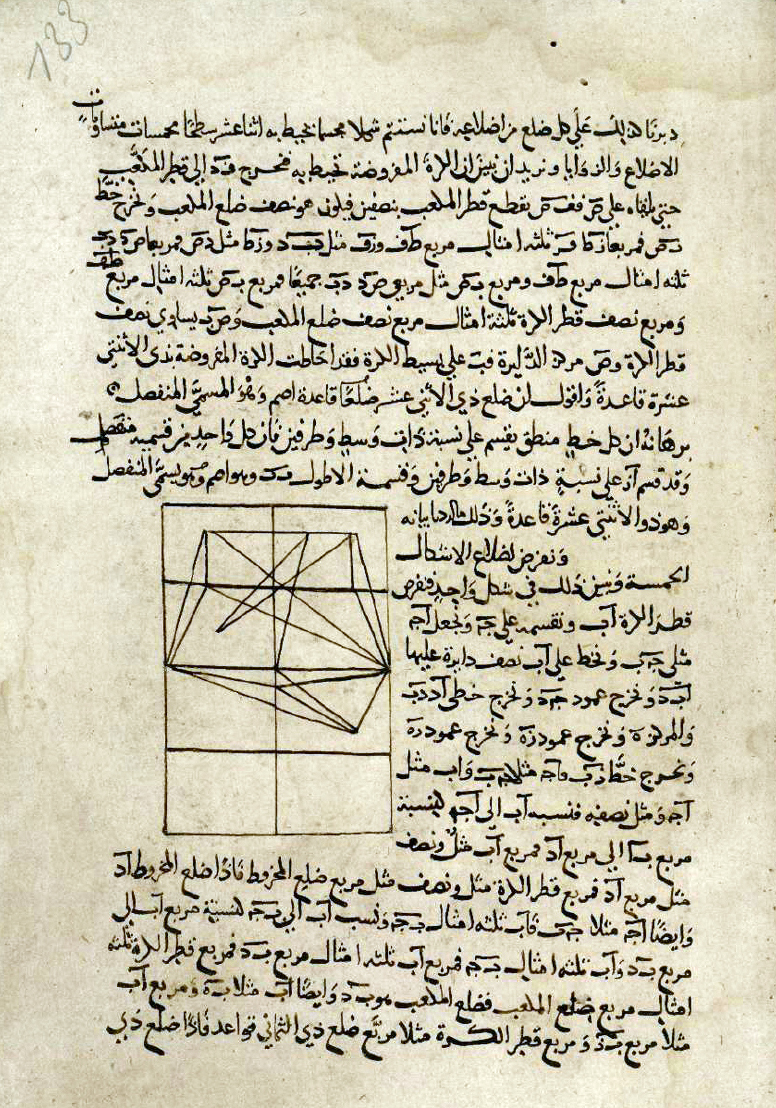 133
دبرنا ذلك على كل ضلع من اضلاعه فانا نستتم شكلا مجسما يحيط به اثنا عشر سطحا مخمسات متساويات
الاضلاع والزوايا ونريد ان نبين ان الكرة المفروضة تحيط به فنخرج الى قطر المكعب
حتى يلقاه على يقطع قطر المكعب بنصفين فيكون هو نصف ضلع المكعب ونخرج خط
ثلثة امثال مربع مثل مثل فمربعا
ثلثة امثال مربع ومربع مثل مربعي جميعا فمربع ثلثة امثال مربع طف
ومربع نصف قطر الكرة ثلثة امثال مربع نصف ضلع المكعب يساوي نصف
قطر الكرة مركز الدايرة على بسيط الكرة فقد احاطت الكرة المفروضة بذي الاثنتي
عشرة قاعدة واقول ان ضلع ذي الاثني عشر ضلعا قاعدة اصم وهو المسمى المنفصل
برهانه ان كل خط منطق يقسم على نسبة ذات وسط وطرفين فان كل واحد من قسميه منفصل
وقد قسم على نسبة ذات وسط وطرفين وقسمة الاطول وهو اصم وهو يسمى المنفصل
وهو ذو الاثنتي عشرة قاعدة وذلك ما اردنا بيانه
ونفرض اضلاع الاشكال
الخمسة ونبين ذلك في شكل واحد فنفرض
قطر الكرة اب ونقسمه على ج ونجعل اج
مثلي جب ونخط على اب نصف دايرة عليها
ادب ونخرج عمود جد ونخرج خطي اد دب
والمركز ه ونخرج عمود زه ونخرج عمود
ونخرج خط زب فاج مثلا جب واب مثل
اج ومثل نصفه فنسبة اب الى اج كنسبة
مربع با الى مربع اد فمربع اب مثل ونصف
مثل مربع اد فمربع قطر الكرة مثل ونصف مثل مربع ضلع المخروط فاذا ضلع المخروط اد
وايضا اج مثلا جب فاب ثلثة امثال بج ونسب اب الى بج كنسبة مربع اب الى
مربع بد واب ثلثة امثال بج فمربع اب ثلثة امثال مربع بد فمربع قطر الكرة ثلثة
امثال مربع ضلع المكعب فضلع المكعب هو بد وايضا اب مثلا به ومربع اب
مثلا مربع بز ومربع قطر الكرة مثلا مربع ضلع ذي الثماني قواعد فاذا ضلع ذي